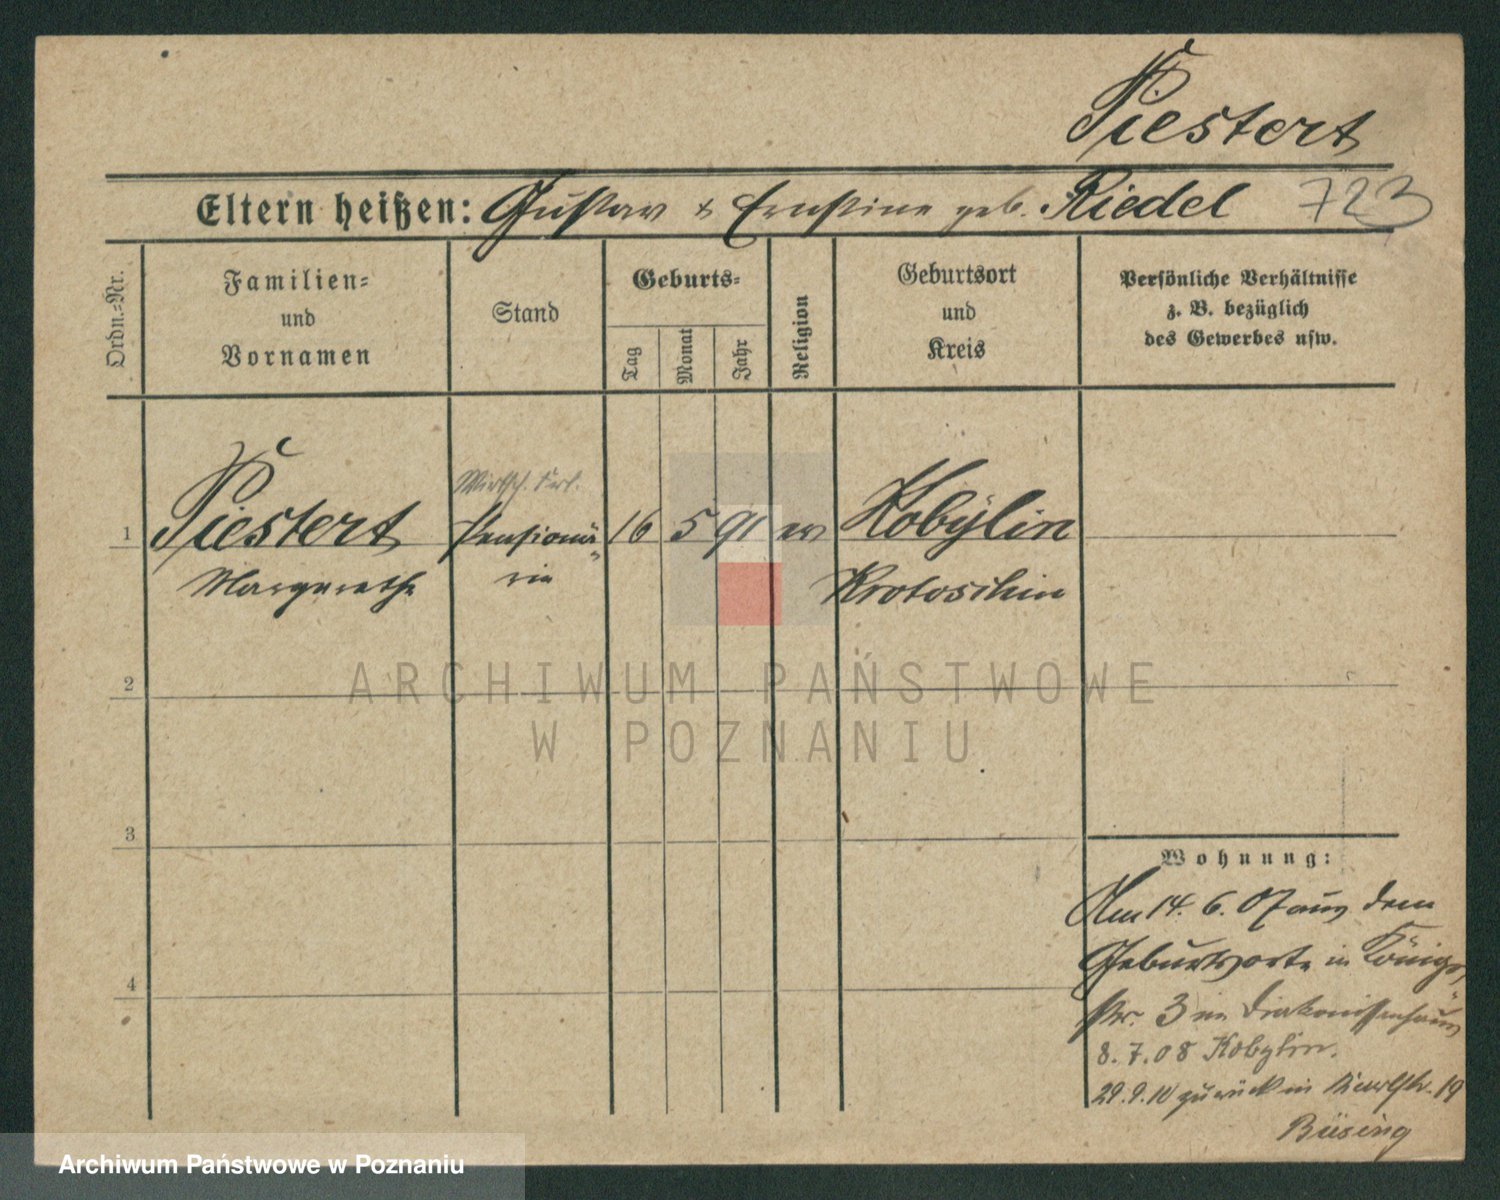 Piestert
Eltern heißen: Gustav & Ernstine geb. Riedel 723
Ordn.=Nr.
Familien=
und
Vornamen
Stand
Geburts=
Tag
Monat
Jahr
Religion
Geburtsort
und
Kreis
Persönliche Verhältnisse
z. B. bezüglich
des Gewerbes usw.
Wirtsch. Frl.
1 Piestert Pensionä= 16 5 91 ev Kobylin
Margarethe rin Krotoschin
2
3
4
Wohnung:
Am 14. 6. 07 aus dem
Geburtsorte in Königs
str. 3 im Diakonissenhaus
8. 7. 08 Kobylin.
29. 9. 10 zurück in 19
Büsing
ARCHIWUM PAŃSTWOWE
W POZNANIU
Archiwum Państwowe w Poznaniu